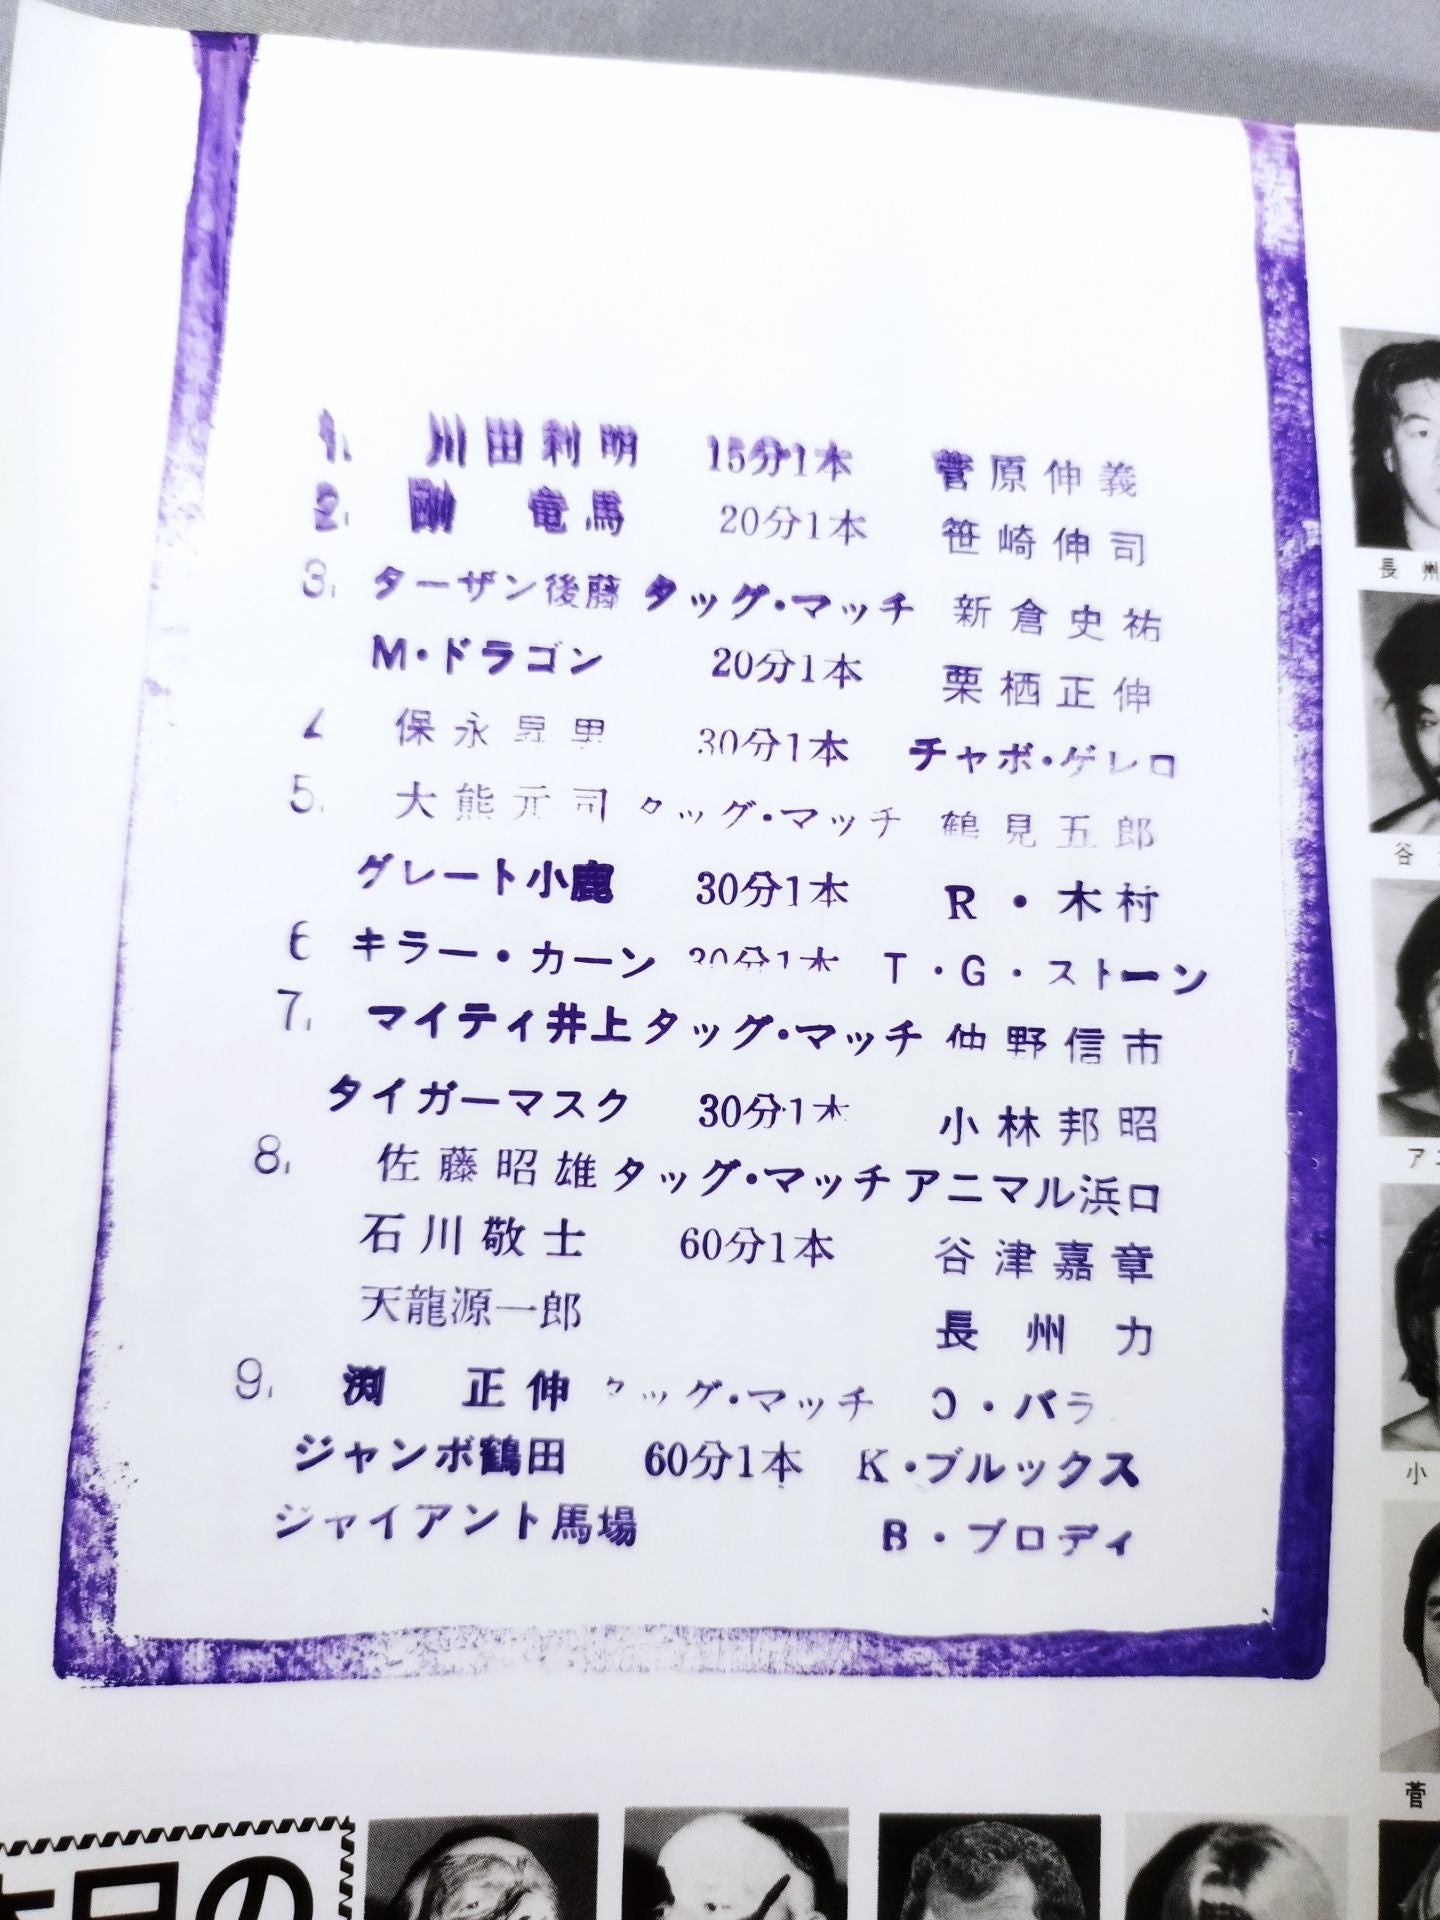 1. 川田利明 15分1本 菅原伸義
2. 剛 竜馬 20分1本 笹崎伸司
3. ターザン後藤 タッグ・マッチ 新倉史祐
M・ドラゴン 20分1本 栗栖正伸
4 保永昇男 30分1本 チャボ・ゲレロ
5. 大熊元司 タッグ・マッチ 鶴見五郎
グレート小鹿 30分1本 R・木村
6 キラー・カーン 30分1本 T・G・ストーン
7. マイティ井上 タッグ・マッチ 仲野信市
タイガーマスク 30分1本 小林邦昭
8. 佐藤昭雄 タッグ・マッチ アニマル浜口
石川敬士 60分1本 谷津嘉章
天龍源一郎 長州力
9. 渕 正伸 タッグ・マッチ ・バラ
ジャンボ鶴田 60分1本 K・ブルックス
ジャイアント馬場 B・ブロディ
長州
谷
アニ
小
菅
本日の